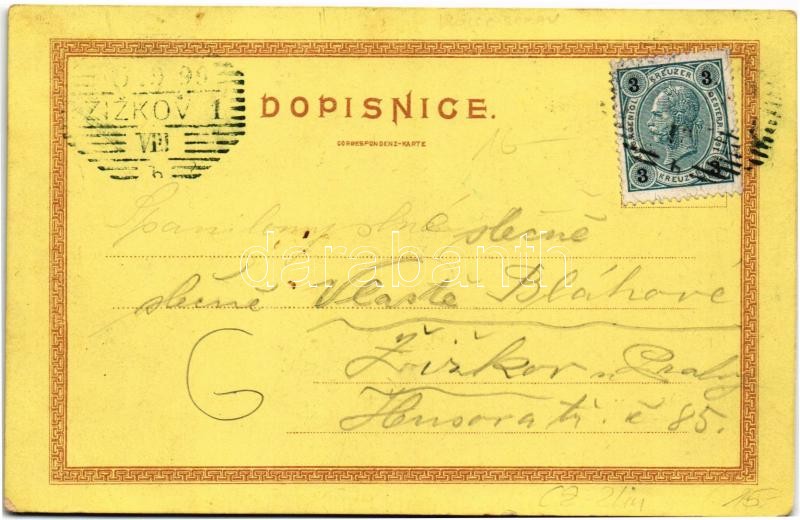 9 99
ŽIŽKOV 1.
VIII
DOPISNICE.
CORRESPONDENZ-KARTE
3 KREUZER 3
3 KREUZER 3
slečně
slečně Vlastě Bláhové
Žižkov u Prahy
Husova tř. č 85.
G
darabanth
15-